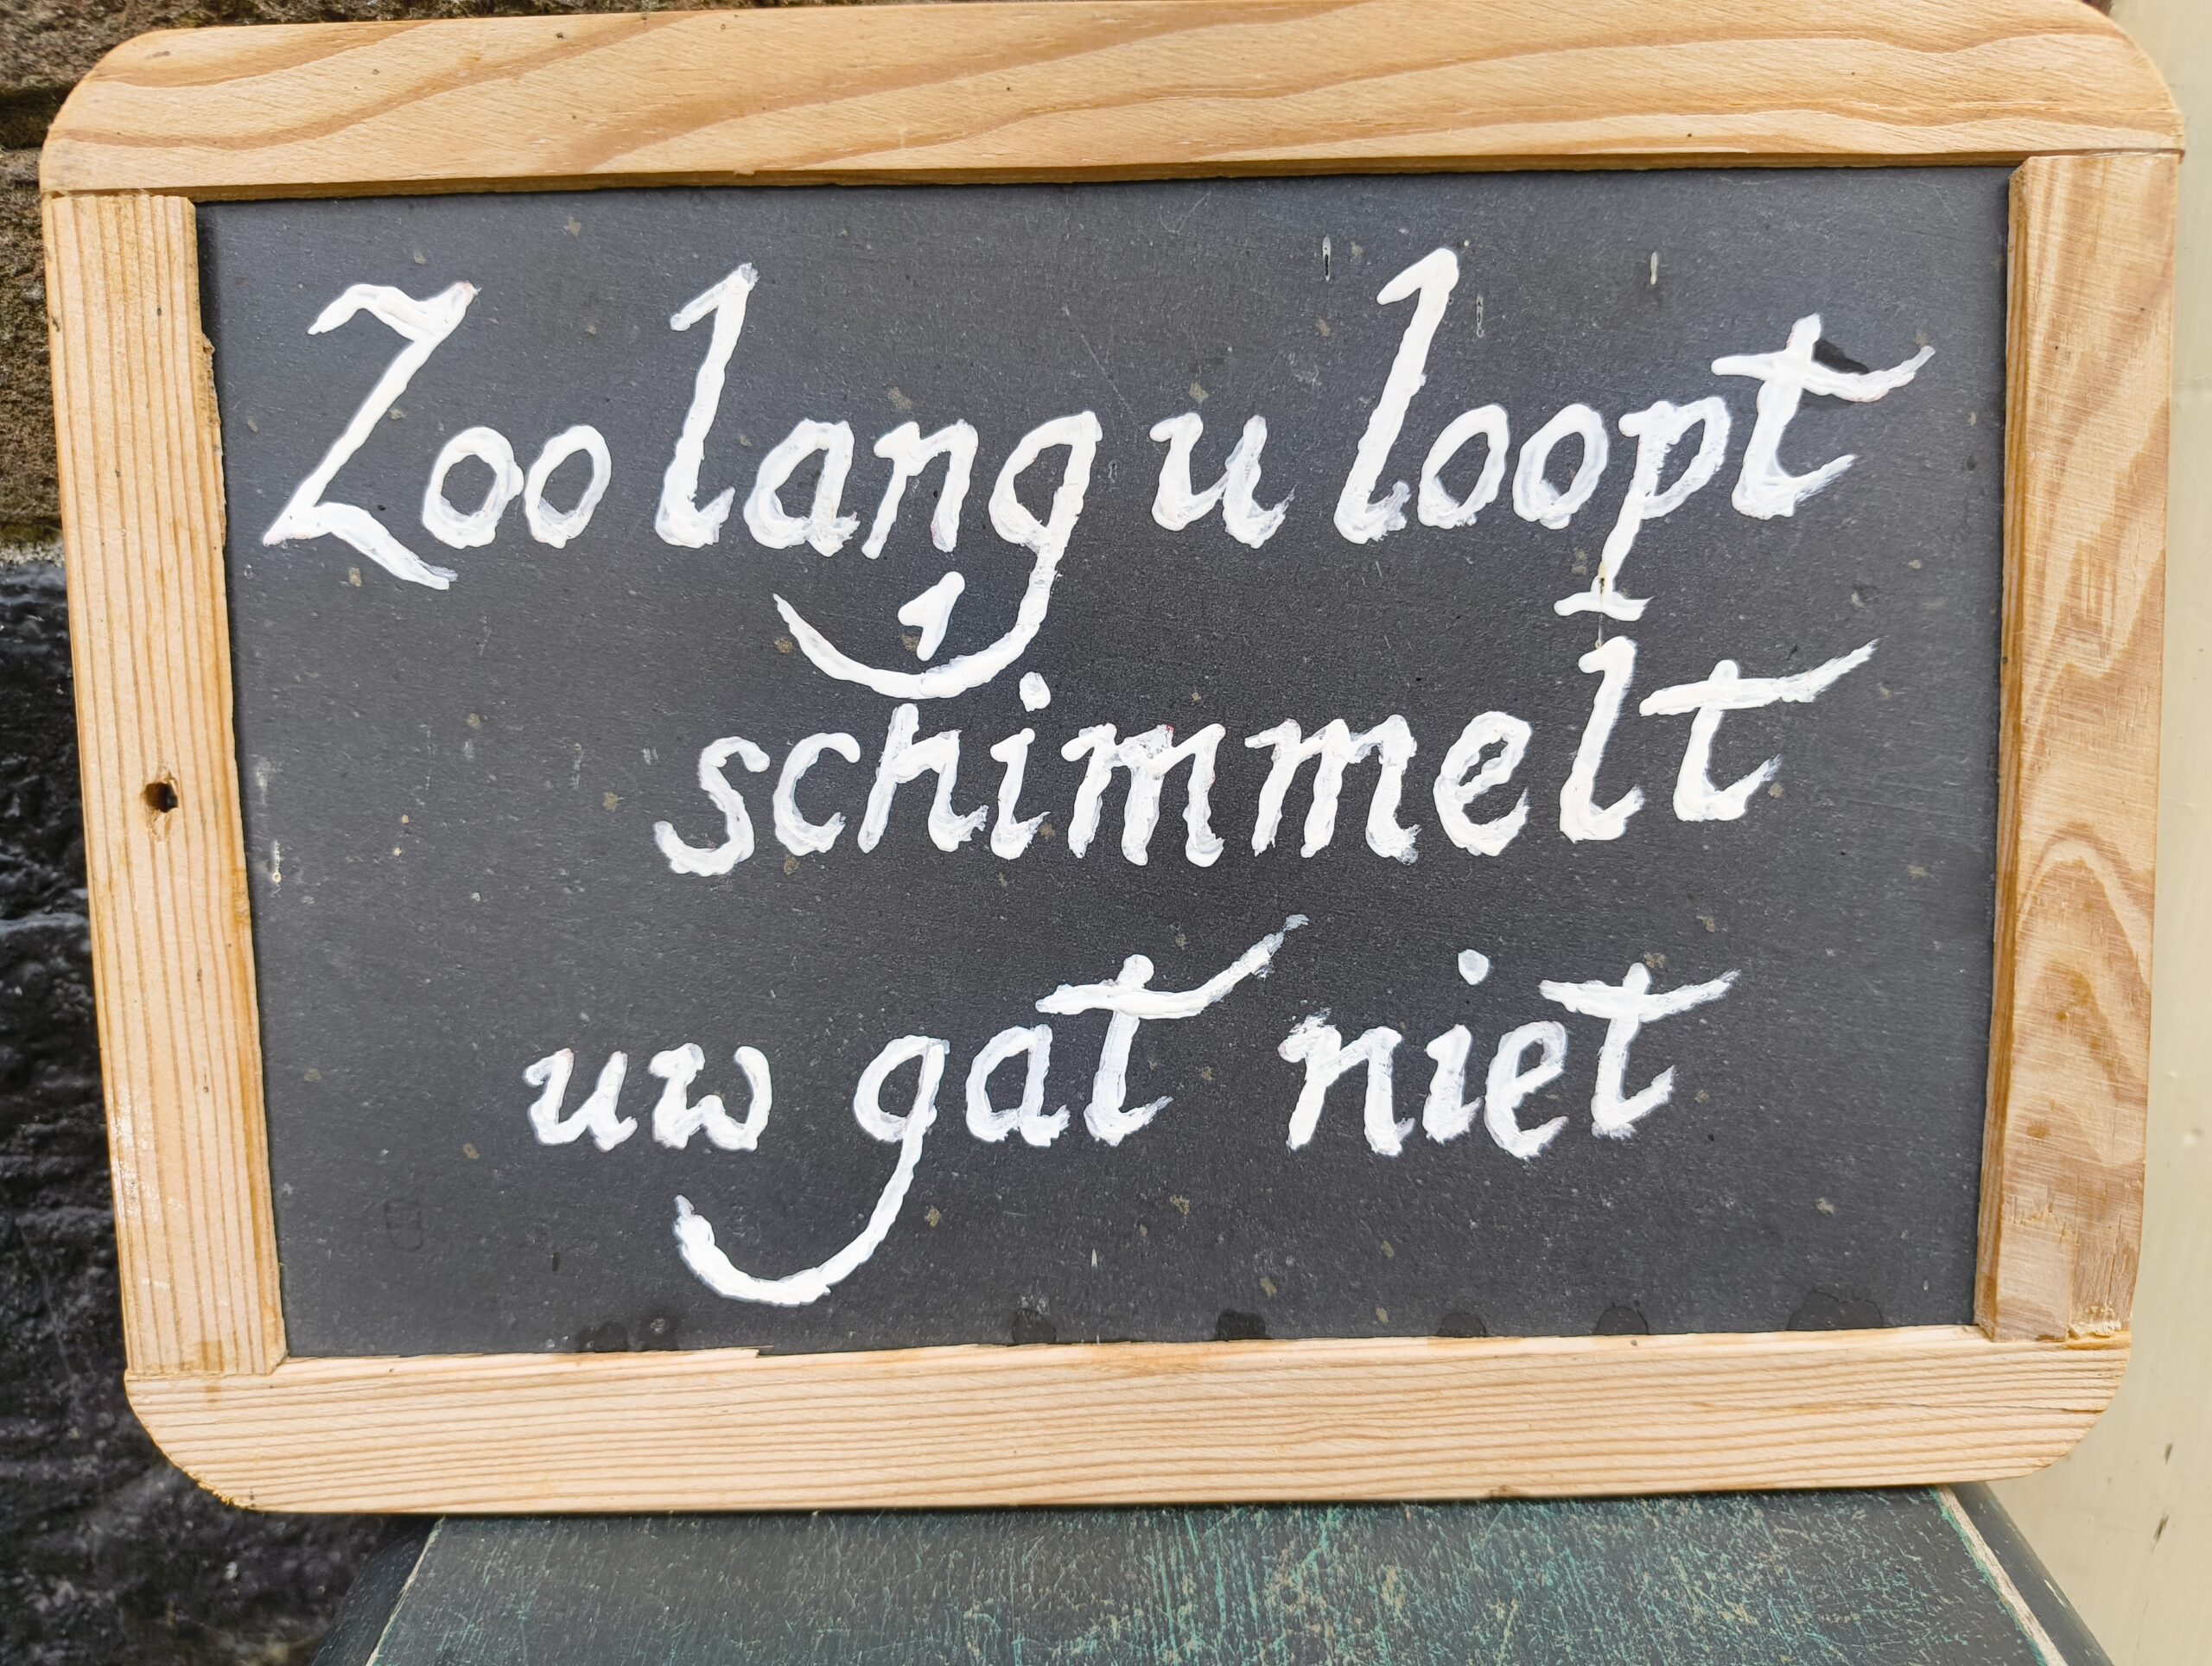 Zoo lang u loopt
schimmelt
uw gat niet